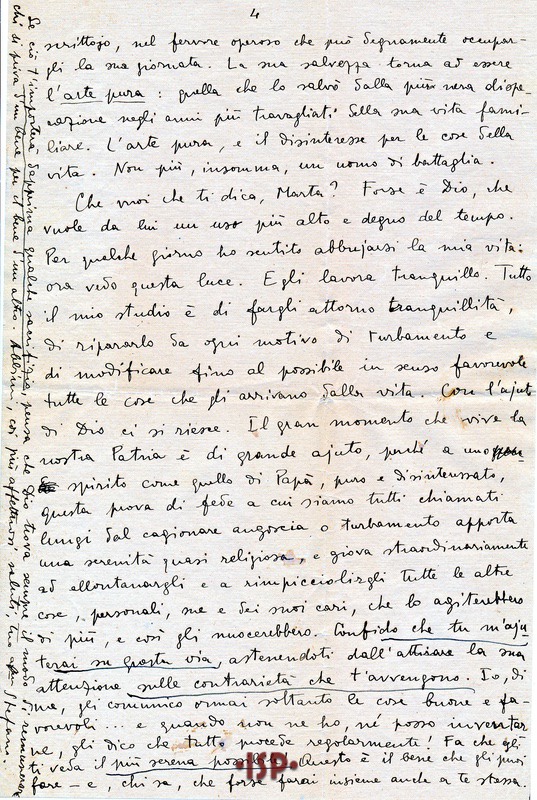 4
scrittojo, nel fervore operoso che più degnamente occupar-
gli la sua giornata. La sua salvezza torna ad essere
l'arte pura: quella che lo salvò dalla più nera dispe-
razione negli anni più travagliati della sua vita fami-
liare. L'arte pura, e il disinteresse per le cose della
vita. Non più, insomma, un uomo di battaglia.
Che vuoi che ti dica, Marta? Forse è Dio, che
vuole da lui un uso più alto e degno del tempo.
Per qualche giorno ho sentito abbujarsi la mia vita:
ora vedo questa luce. Egli lavora tranquillo. Tutto
il mio studio è di fargli attorno tranquillità,
di ripararlo da ogni motivo di turbamento e
di modificare fino al possibile in senso favorevole
tutte le cose che gli arrivano dalla vita. Con l'ajuto
di Dio ci si riesce. Il gran momento che vive la
nostra Patria è di grande ajuto, perché a uno
spirito come quello di Papà, puro e disinteressato,
questa prova di fede a cui siamo tutti chiamati
lungi dal cagionare angoscia o turbamento apporta
una serenità quasi religiosa, e giova straordinariamente
ad allontanargli e a rimpicciolirgli tutte le altre
cose, personali, sue e dei suoi cari, che lo agiterebbero
di più, e così gli nuocerebbero. Confido che tu m'aju-
terai su questa via, astenendoti dall'attirare la sua
attenzione sulle contrarietà che t'avvengono. Io, di
me, gli comunico ormai soltanto le cose buone e fa-
vorevoli... e quando non ne ho, né posso inventar
ne, gli dico che tutto procede regolarmente! Fa che egli
ti veda il più serena possibile. Questo è il bene che gli puoi
fare – e, chi sa, che forse farai insieme anche a te stessa.
Se ciò t'importerà dapprima qualche sacrifizio, pensa che Dio trova sempre il modo di remunerare
chi si priva d'un bene per il bene d'un altro. Abbimi, coi più affettuosi saluti, tuo Stefano.
ISP